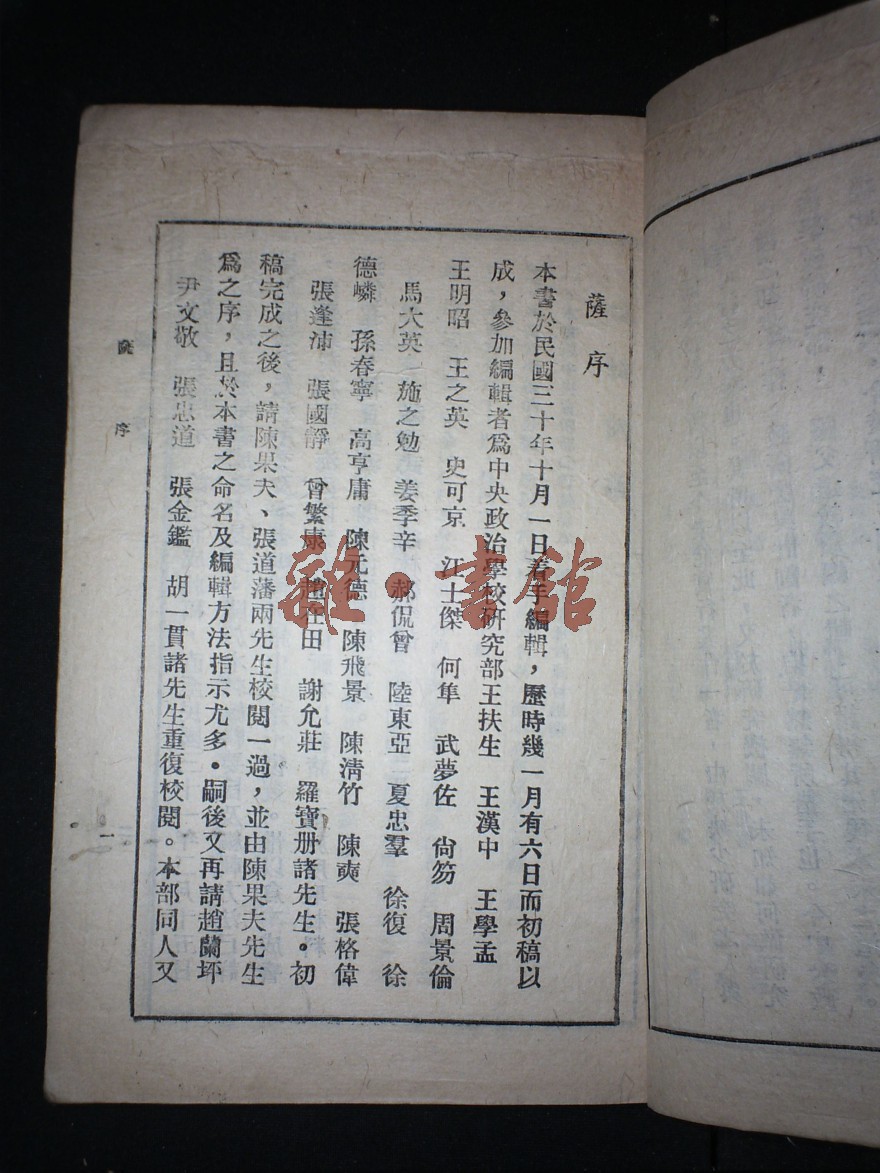 薩序
本書於民國三十年十月一日着手編輯，歷時幾一月有六日而初稿以
成，參加編輯者爲中央政治學校研究部王扶生　王漢中　王學孟
王明昭　王之英　史可京　江士傑　何隼　武夢佐　尙笏　周景倫
馬大英　施之勉　姜季辛　郝侃曾　陸東亞　夏忠羣　徐復　徐
德嶙　孫春寧　高亨庸　陳元德　陳飛景　陳清竹　陳奭　張格偉
張逢沛　張國靜　曾繁康　趙在田　謝允莊　羅寶册諸先生。初
稿完成之後，請陳果夫、張道藩兩先生校閱一過，並由陳果夫先生
爲之序，且於本書之命名及編輯方法指示尤多。嗣後又再請趙蘭坪
尹文敬　張忠道　張金鑑　胡一貫諸先生重復校閱。本部同人又
薩序
一
雜·書館